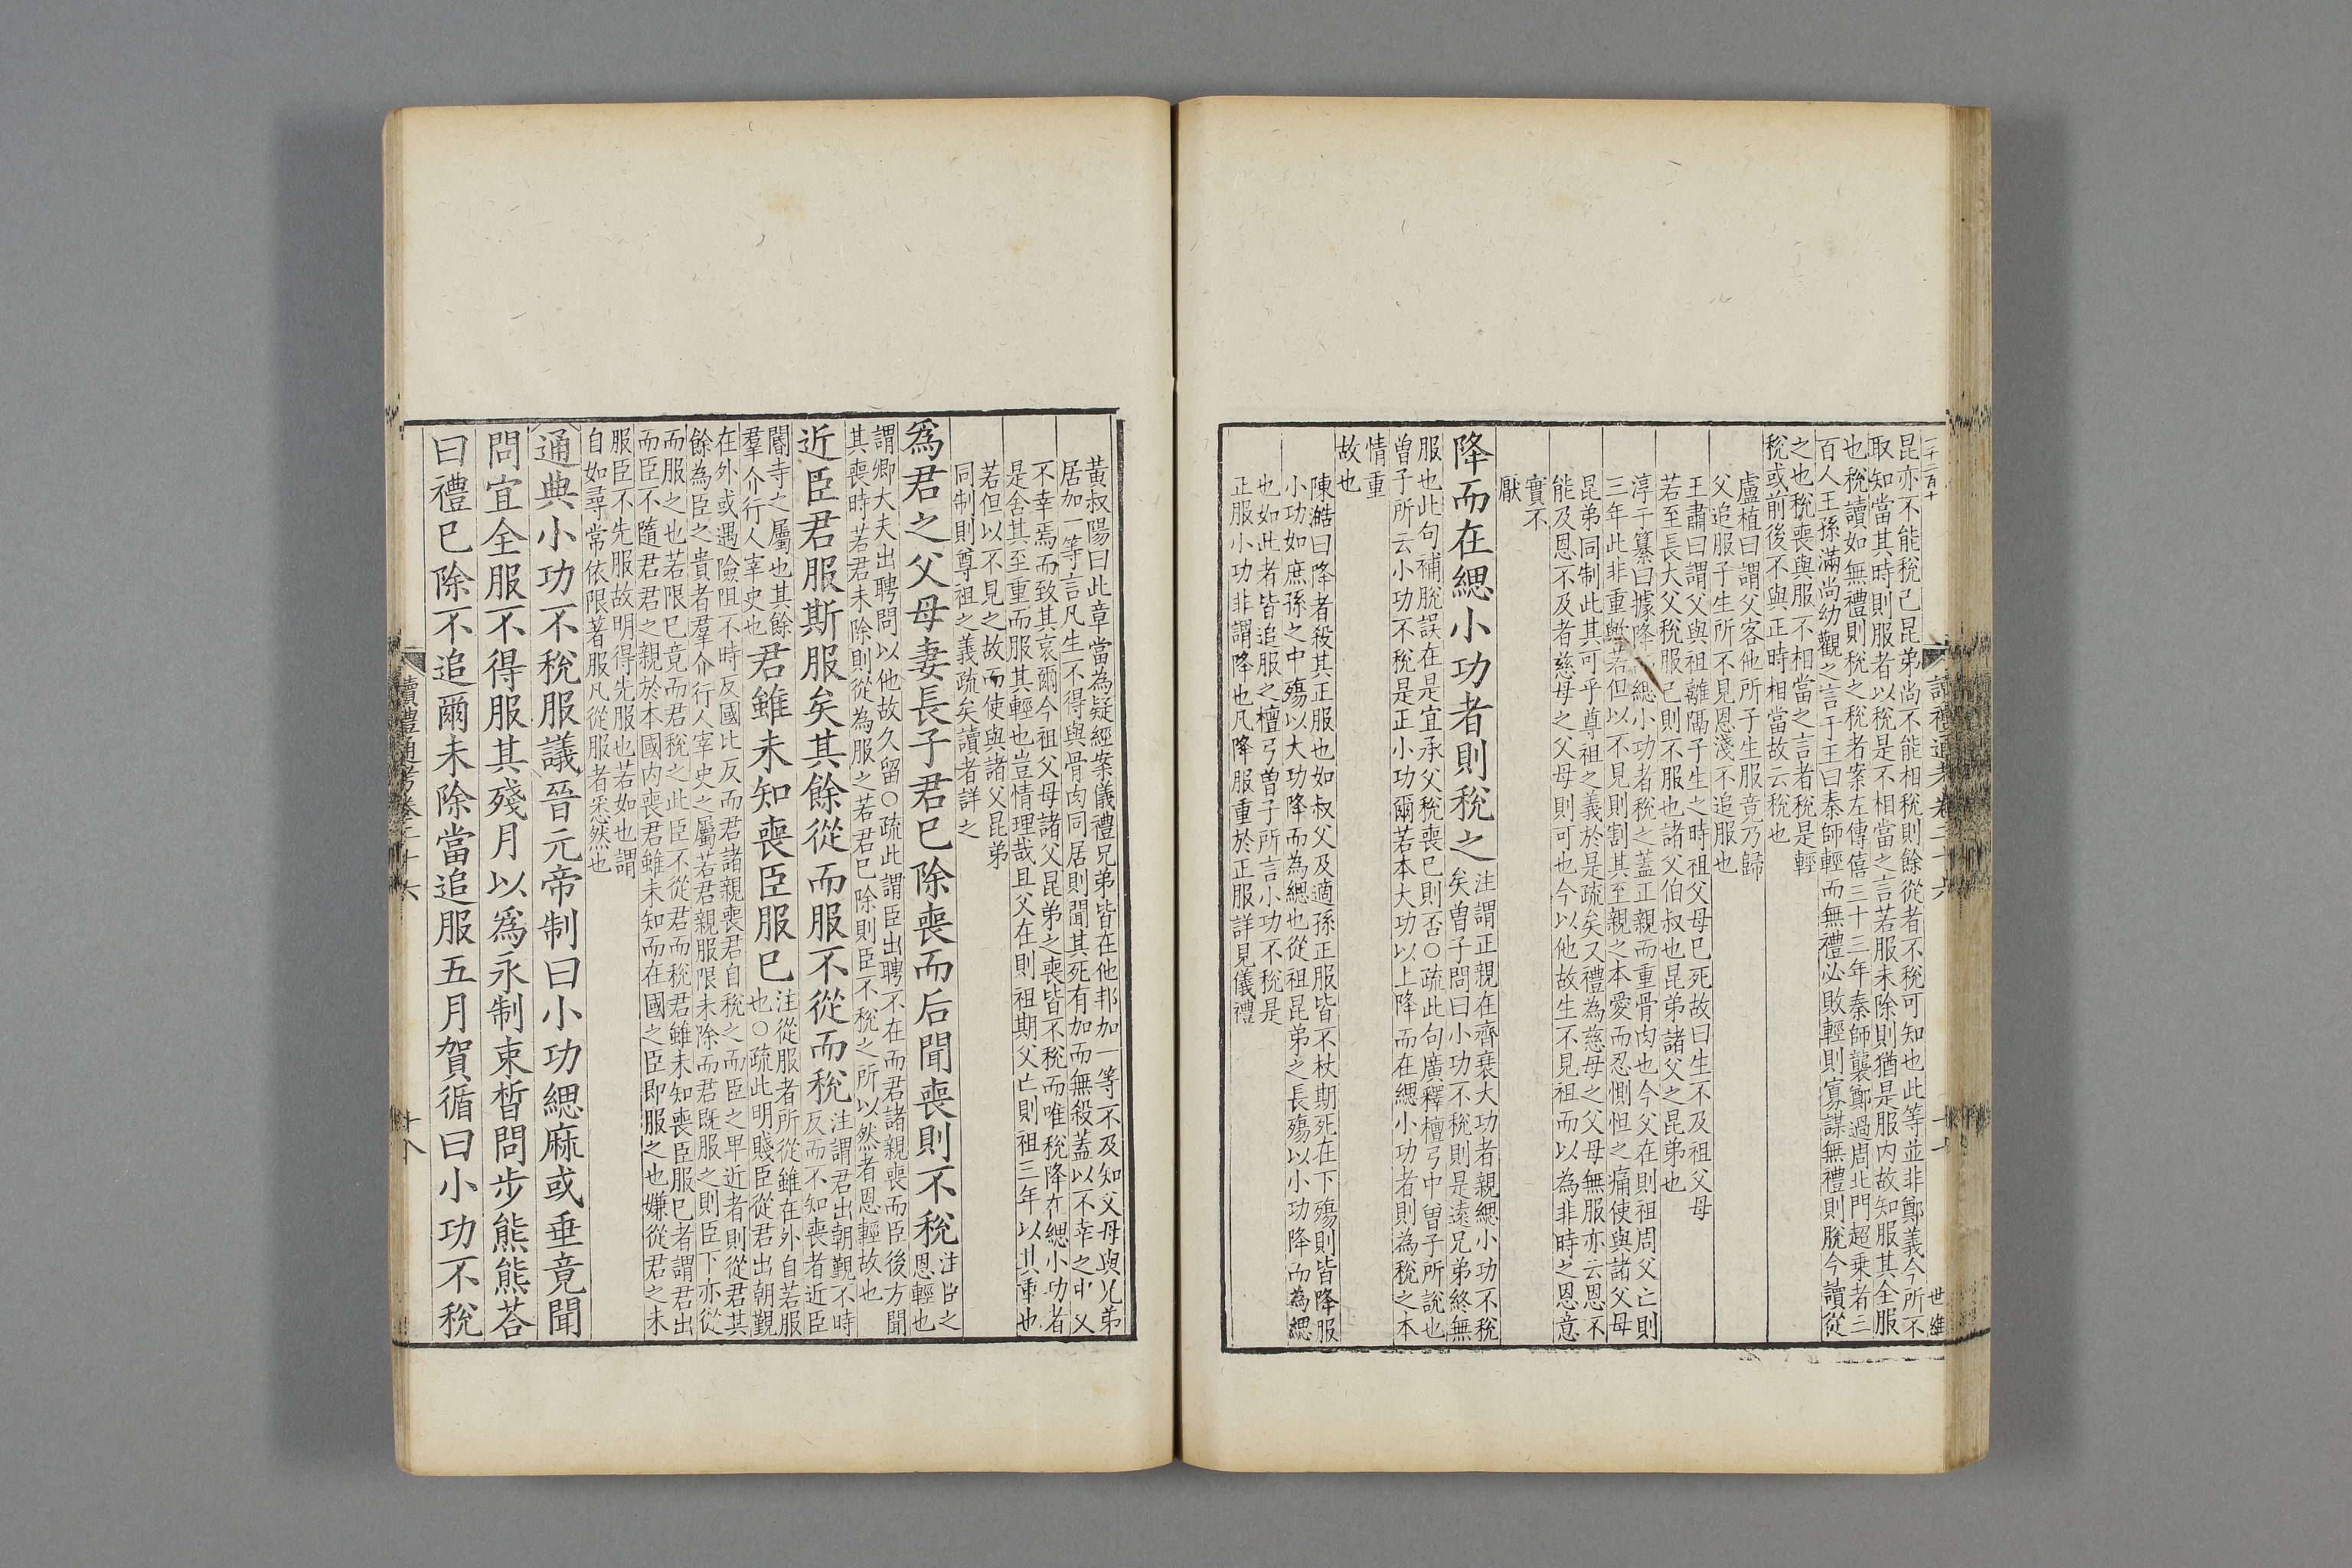 二十二百十
讀禮通考卷二十六
十七
世維
昆亦不能稅己昆弟尚不能相稅則餘從者不稅可知也此等並非鄭義今所不
取知當其時則服者以稅是不相當之言若服未除則猶是服内故知服其全服
也稅讀如無禮則稅之稅者案左傳僖三十三年秦師襲鄭過周北門超乗者三
百人王孫滿尚幼觀之言于王曰秦師輕而無禮必敗輕則寡謀無禮則脫今讀從
之也稅喪與服不相當之言者稅是輕
稅或前後不與正時相當故云稅也
盧植曰謂父客他所子生服竟乃歸
父追服子生所不見恩淺不追服也
王肅曰謂父與祖離隔子生之時祖父母已死故曰生不及祖父母
若至長大父稅服已則不服也諸父伯叔也昆弟諸父之昆弟也
淳于纂曰據降緦小功者稅之蓋正親而重骨肉也今父在則祖周父亡則
三年此非重歟若但以不見則割其至親之本愛而忍惻怛之痛使與諸父母
昆弟同制此其可乎尊祖之義於是疏矣又禮為慈母之父母無服亦云恩不
能及恩不及者慈母之父母則可也今以他故生不見祖而以為非時之恩意
實不
厭
降而在緦小功者則稅之
注謂正親在齊衰大功者親緦小功不稅
矣曾子問曰小功不稅則是遠兄弟終無
服也此句補脫誤在是宜承父稅喪已則否○疏此句廣釋檀弓中曾子所說也
曾子所云小功不稅是正小功爾若本大功以上降而在緦小功者則為稅之本
情重
故也
陳澔曰降者殺其正服也如叔父及適孫正服皆不杖期死在下殤則皆降服
小功如庶孫之中殤以大功降而為緦也從祖昆弟之長殤以小功降而為緦
也如此者皆追服之檀弓曾子所言小功不稅是
正服小功非謂降也凡降服重於正服詳見儀禮
黃叔陽曰此章當為疑經案儀禮兄弟皆在他邦加一等不及知父母與兄弟
居加一等言凡生不得與骨肉同居則聞其死有加而無殺蓋以不幸之中又
不幸焉而致其哀爾今祖父母諸父昆弟之喪皆不稅而唯稅降在緦小功者
是舍其至重而服其輕也豈情理哉且父在則祖期父亡則祖三年以其重也
若但以不見之故而使與諸父昆弟
同制則尊祖之義疏矣讀者詳之
爲君之父母妻長子君已除喪而后聞喪則不稅
注臣之
恩輕也
謂卿大夫出聘問以他故久留○疏此謂臣出聘不在而君諸親喪而臣後方聞
其喪時若君未除則從為服之若君已除則臣不稅之所以然者恩輕故也
近臣君服斯服矣其餘從而服不從而稅
注謂君出朝覲不時
反而不知喪者近臣
閽寺之屬也其餘
羣介行人宰史也
君雖未知喪臣服已
注從服者所從雖在外自若服
也○疏此明賤臣從君出朝覲
在外或遇險阻不時反國比反而君諸親喪君自稅之而臣之卑近者則從君其
餘為臣之貴者羣介行人宰史之屬若君親服限未除而君既服之則臣下亦從
而服之也若限已竟而君稅之此臣不從君而稅君雖未知喪臣服已者謂君出
而臣不隨君君之親於本國内喪君雖未知而在國之臣即服之也嫌從君之未
服臣不先服故明得先服也若如也謂
自如尋常依限著服凡從服者悉然也
通典小功不稅服議晉元帝制曰小功緦麻或垂竟聞
問宜全服不得服其殘月以爲永制束皙問步熊熊荅
曰禮已除不追爾未除當追服五月賀循曰小功不稅
讀禮通考卷二十六
十八